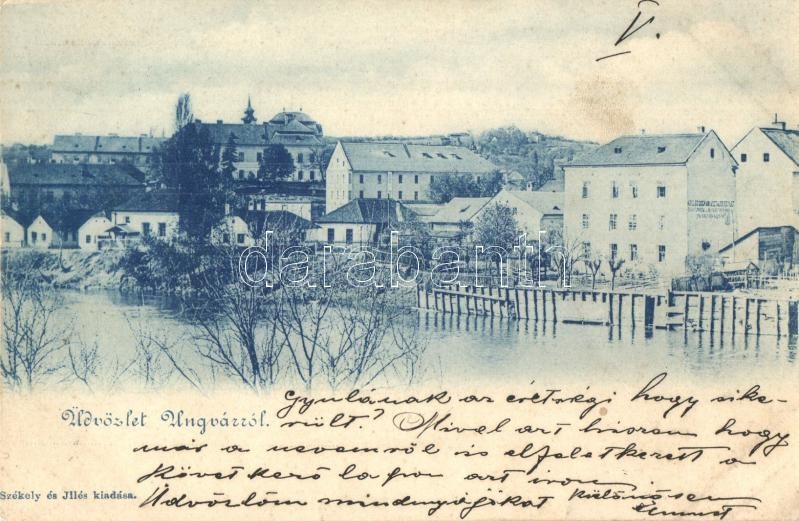 V.
darabanth
Üdvözlet Ungvárról.
Gyulának az érétségi hogy sike-
rült? Mivel azt hiszem hogy
már a nevemről is elfeletkezett a
Következő lapon azt irom
Üdvözlöm mindnyájukat Különösen
Székely és Jllés kiadása.